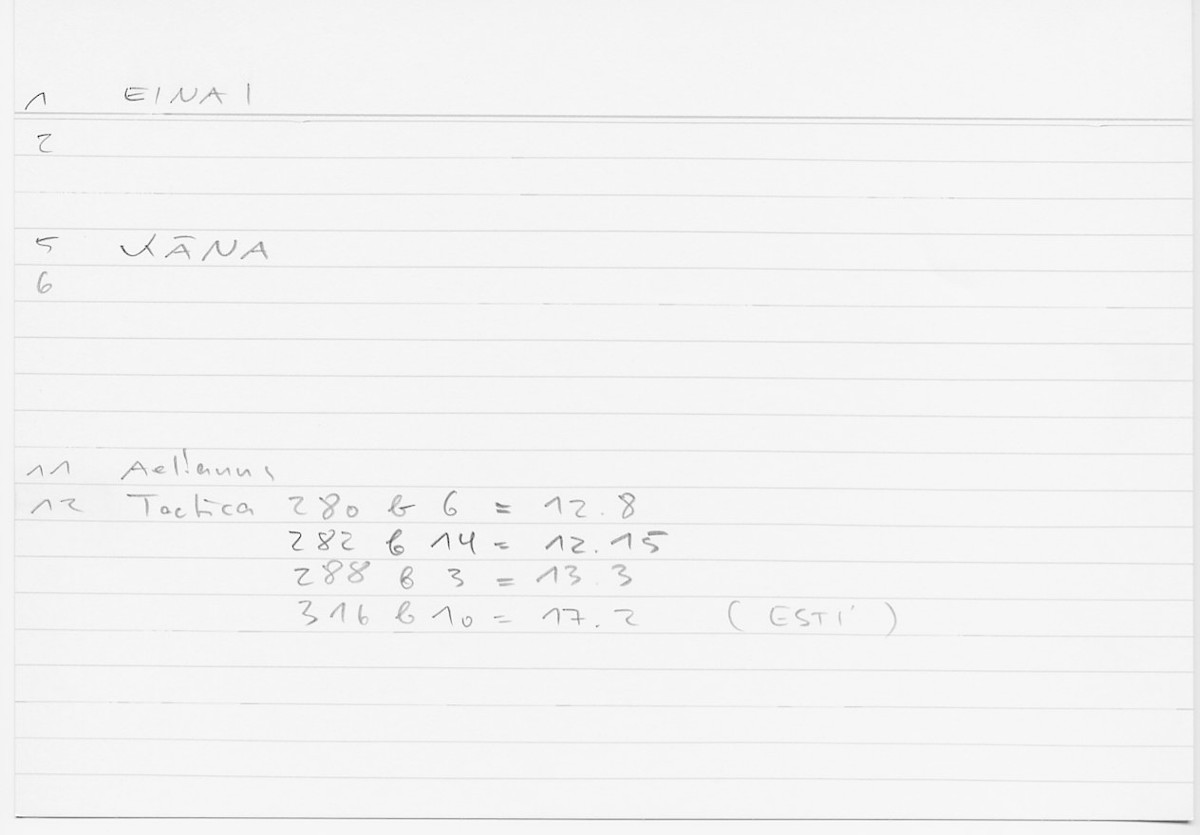 1 EINAI
2
5 KĀNA
6
11 Aelianus
12 Tactica 280 b 6 = 12.8
282 b 14 = 12.15
288 b 3 = 13.3
316 b 10 = 17.2 (ESTI')